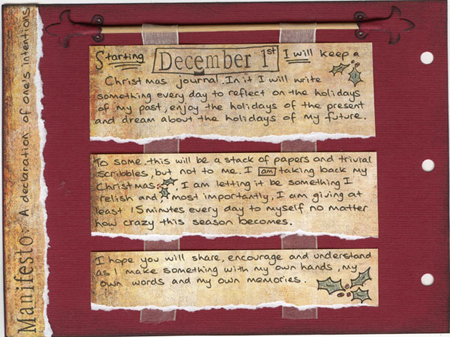 Manifesto: A declaration of one's intentions
Starting December 1st I will keep a
Christmas journal. In it I will write
something every day to reflect on the holidays
of my past, enjoy the holidays of the present
and dream about the holidays of my future.
To some, this will be a stack of papers and trivial
scribbles, but not to me. I am taking back my
Christmas. I am letting it be something I
relish and most importantly, I am giving at
least 15 minutes every day to myself no matter
how crazy this season becomes.
I hope you will share, encourage and understand
as I make something with my own hands, my
own words and my own memories.